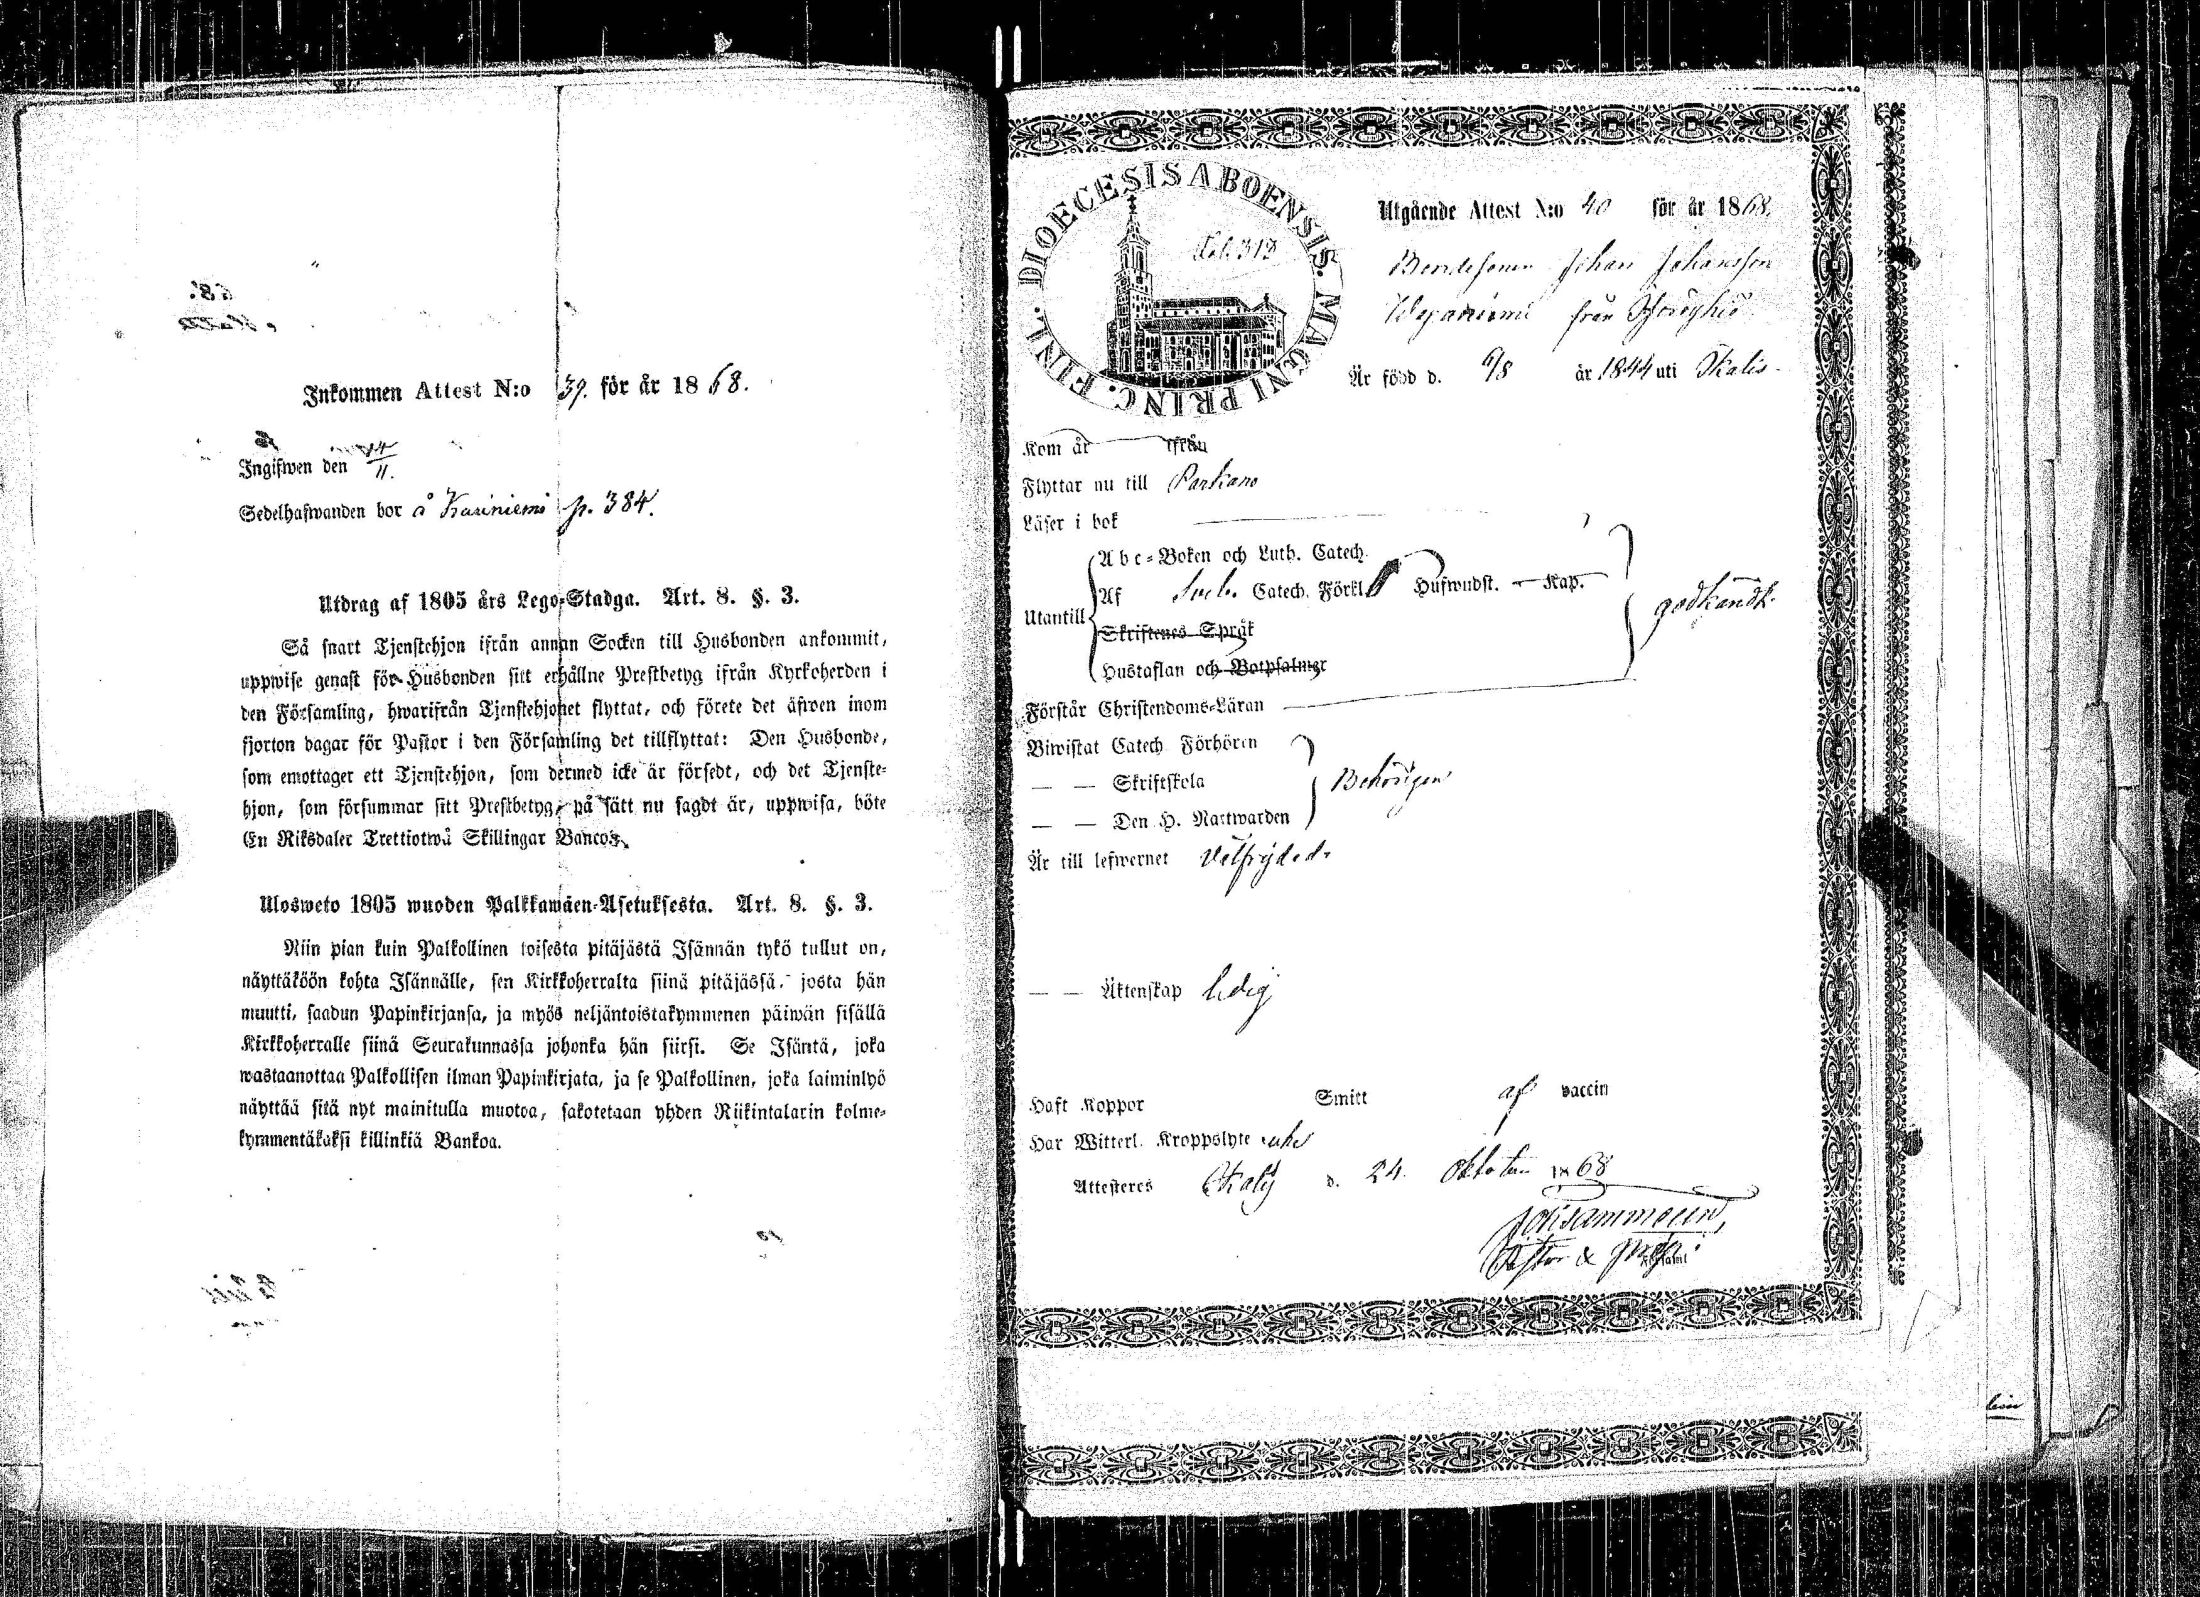 Inkommen Attest N:o 39. för år 1868.
Ingifwen den 14/11.
Sedelhafwanden bor å Kasiniemi p. 384.
Utdrag af 1805 års Lego-Stadga. Art. 8. §. 3.
Så snart Tjenstehjon ifrån annan Socken till Husbonden ankommit,
uppwise genast för Husbonden sitt erhållne Prestbetyg ifrån Kyrkoherden i
den Församling, hwarifrån Tjenstehjonet flyttat, och förete det äfwen inom
fjorton dagar för Pastor i den Församling det tillflyttat: Den Husbonde,
som emottager ett Tjenstehjon, som dermed icke är försedt, och det Tjenste-
hjon, som försummar sitt Prestbetyg, på sätt nu sagdt är, uppwisa, böte
En Riksdaler Trettiotwå Skillingar Banco.
Ulosweto 1805 wuoden Palkkawäen-Asetuksesta. Art. 8. §. 3.
Niin pian kuin Palkollinen toisesta pitäjästä Isännän tykö tullut on,
näyttäköön kohta Isännälle, sen Kirkkoherralta siinä pitäjässä, josta hän
muutti, saadun Papinkirjansa, ja myös neljäntoistakymmenen päiwän sisällä
Kirkkoherralle siinä Seurakunnassa johonka hän siirsi. Se Isäntä, joka
wastaanottaa Palkollisen ilman Papinkirjata, ja se Palkollinen, joka laiminlyö
näyttää sitä nyt mainitulla muotoa, sakotetaan yhden Riikintalarin kolme-
kymmentäkaksi killinkiä Bankoa.
DIOECESIS ABOENSIS. MAGNI PRINC. FINL.
Fol. 313
Utgående Attest N:o 40 för år 1868.
Bondesonen Johan Johansson
från
Är född d. 6/8 år 1844 uti Ikalis.
Kom år ifrån
Flyttar nu till Parkano
Läser i bok
Abc-Boken och Luth. Catech.
Utantill Af Catech. Förkl. Hufwudst. Kap. godkändt.
Skriftenes Språk
Hustaflan och Botpsalmer
Förstår Christendoms-Läran
Biwistat Catech. Förhören
— — Skriftskola Behörigen
— — Den H. Nattwarden
Är till lefwernet Välfrejdad.
— — Äktenskap ledig
Haft Koppor Smitt af vaccin
Har Witterl. Kroppslyte icke
Attesteras Ikalis d. 24. Oktober 1868
Pastor &